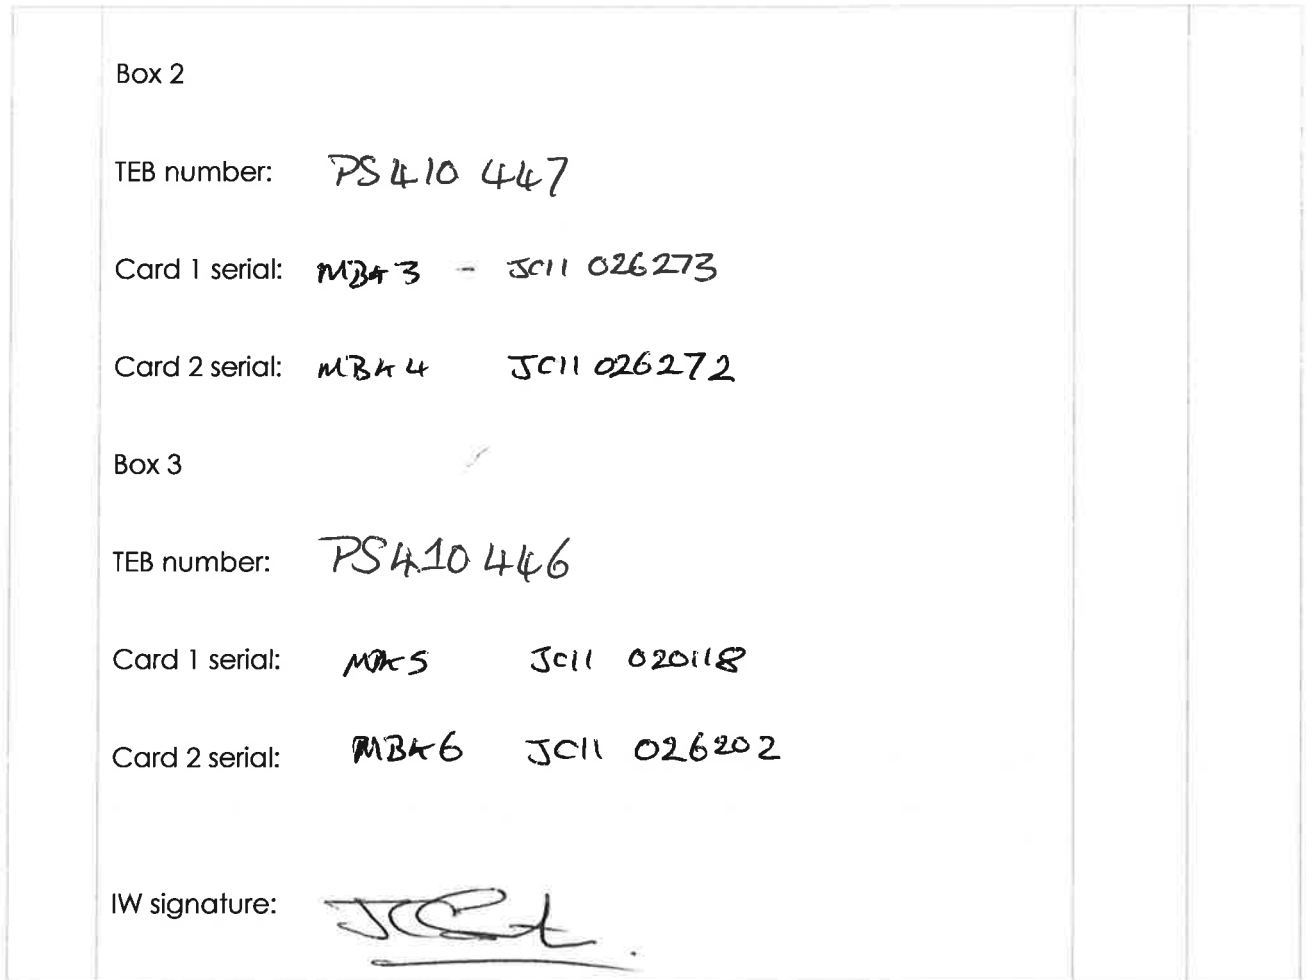 Box 2
TEB number: PS410 447
Card 1 serial: MBK3 - JC11 026273
Card 2 serial: MBK4 JC11 026272
Box 3
TEB number: PS410 446
Card 1 serial: MBK5 JC11 020118
Card 2 serial: MBK6 JC11 026202
IW signature: